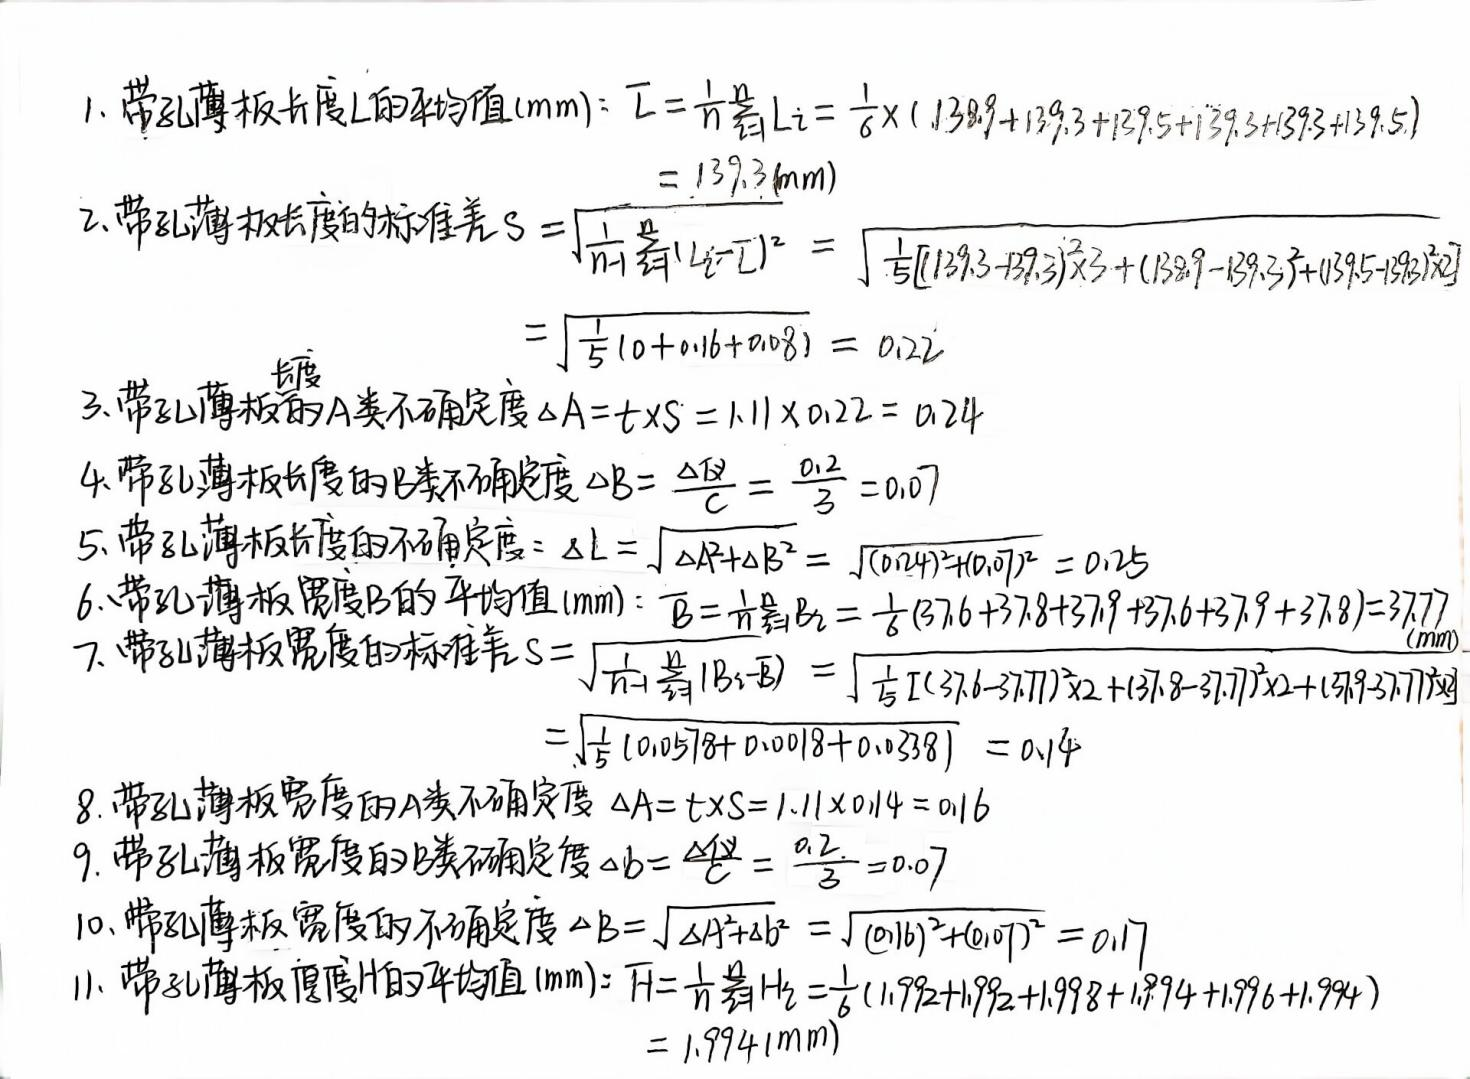 1. 带孔薄板长度L的平均值(mm): L̅ = 1/n ∑_{i=1}^{n} Li = 1/6 × (138.9+139.3+139.5+139.3+139.3+139.5)
= 139.3(mm)
2. 带孔薄板长度的标准差 S = √(1/(n-1) ∑_{i=1}^{n} (Li-L̅)²) = √(1/5[(139.3-139.3)²×3+(138.9-139.3)²+(139.5-139.3)²×2])
= √(1/5(0+0.16+0.08)) = 0.22
3. 带孔薄板长度的A类不确定度 △A = t×S = 1.11×0.22 = 0.24
4. 带孔薄板长度的B类不确定度 △B = △仪/C = 0.2/3 = 0.07
5. 带孔薄板长度的不确定度: △L = √(△A²+△B²) = √((0.24)²+(0.07)²) = 0.25
6. 带孔薄板宽度B的平均值(mm): B̅ = 1/n ∑_{i=1}^{n} Bi = 1/6(37.6+37.8+37.9+37.6+37.9+37.8)=37.77(mm)
7. 带孔薄板宽度的标准差 S = √(1/(n-1) ∑_{i=1}^{n} (Bi-B̅)) = √(1/5[(37.6-37.77)²×2+(37.8-37.77)²×2+(37.9-37.77)²×2])
= √(1/5(0.0578+0.0018+0.0338)) = 0.14
8. 带孔薄板宽度的A类不确定度 △A = t×S = 1.11×0.14 = 0.16
9. 带孔薄板宽度的B类不确定度 △b = △仪/C = 0.2/3 = 0.07
10. 带孔薄板宽度的不确定度 △B = √(△A²+△b²) = √((0.16)²+(0.07)²) = 0.17
11. 带孔薄板厚度H的平均值(mm): H̅ = 1/n ∑_{i=1}^{n} Hi = 1/6(1.992+1.992+1.998+1.994+1.996+1.994)
= 1.994(mm)